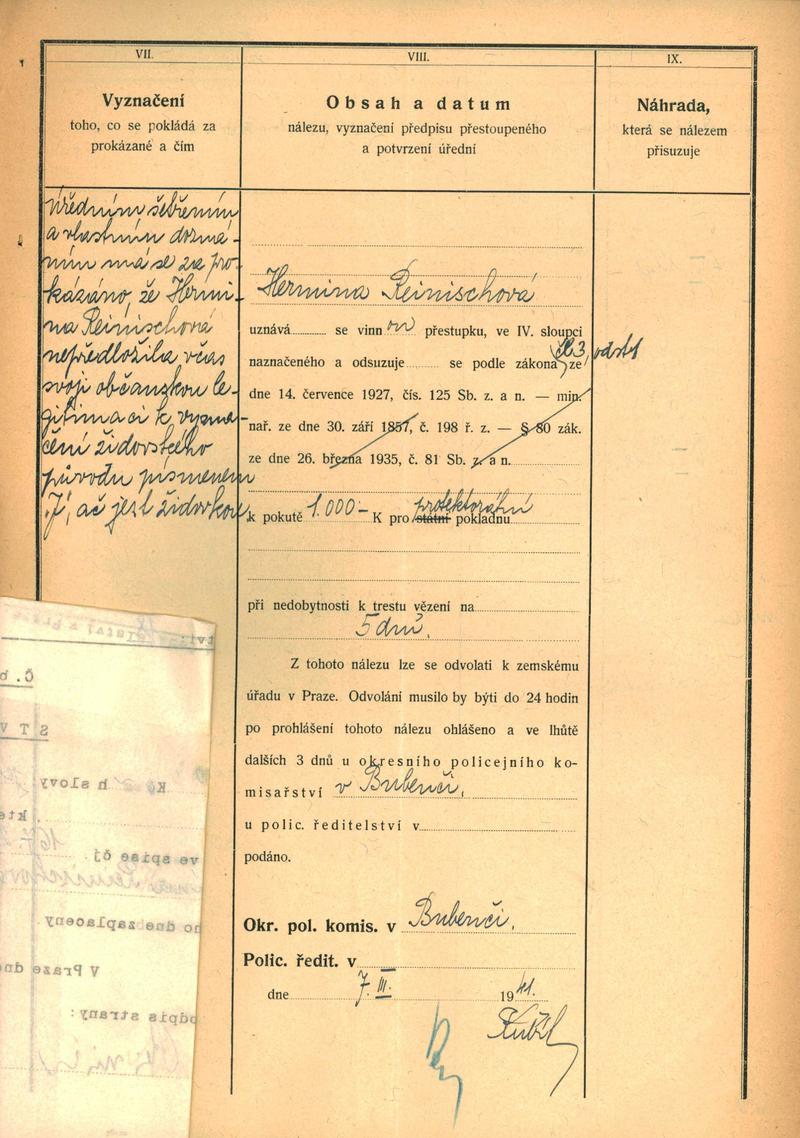 VII.
Vyznačení
toho, co se pokládá za
prokázané a čím
úředním šetřením
a vlastním dozná-
ním má se za pro-
kázáno, že Hermi-
na Reinischová
nepředložila včas
svoji občanskou le-
gitimaci k vyzna-
čení židovského
původu písmenem
"J", ač jest židovkou.
VIII.
Obsah a datum
nálezu, vyznačení předpisu přestoupeného
a potvrzení úřední
Hermina Reinischová
uznává se vinnou přestupku, ve IV. sloupci
naznačeného a odsuzuje se podle zákona § 3 odst 1 ze
dne 14. července 1927, čís. 125 Sb. z. a n. — min.
nař. ze dne 30. září 1857, č. 198 ř. z. — § 80 zák.
ze dne 26. března 1935, č. 81 Sb. z. a n.
k pokutě 1.000·- K pro státní protektorátní pokladnu
při nedobytnosti k trestu vězení na
5 dnů.
Z tohoto nálezu lze se odvolati k zemskému
úřadu v Praze. Odvolání musilo by býti do 24 hodin
po prohlášení tohoto nálezu ohlášeno a ve lhůtě
dalších 3 dnů u okresního policejního ko-
misařství v Bubenči,
u polic. ředitelství v
podáno.
Okr. pol. komis. v Bubenči.
Polic. ředit. v
dne 7. III. 1941.
IX.
Náhrada,
která se nálezem
přisuzuje
Č.
S T V
K h slovy
kte
ve spise čj
ho dne zaplaceny
V Praze dne
odpis strany: